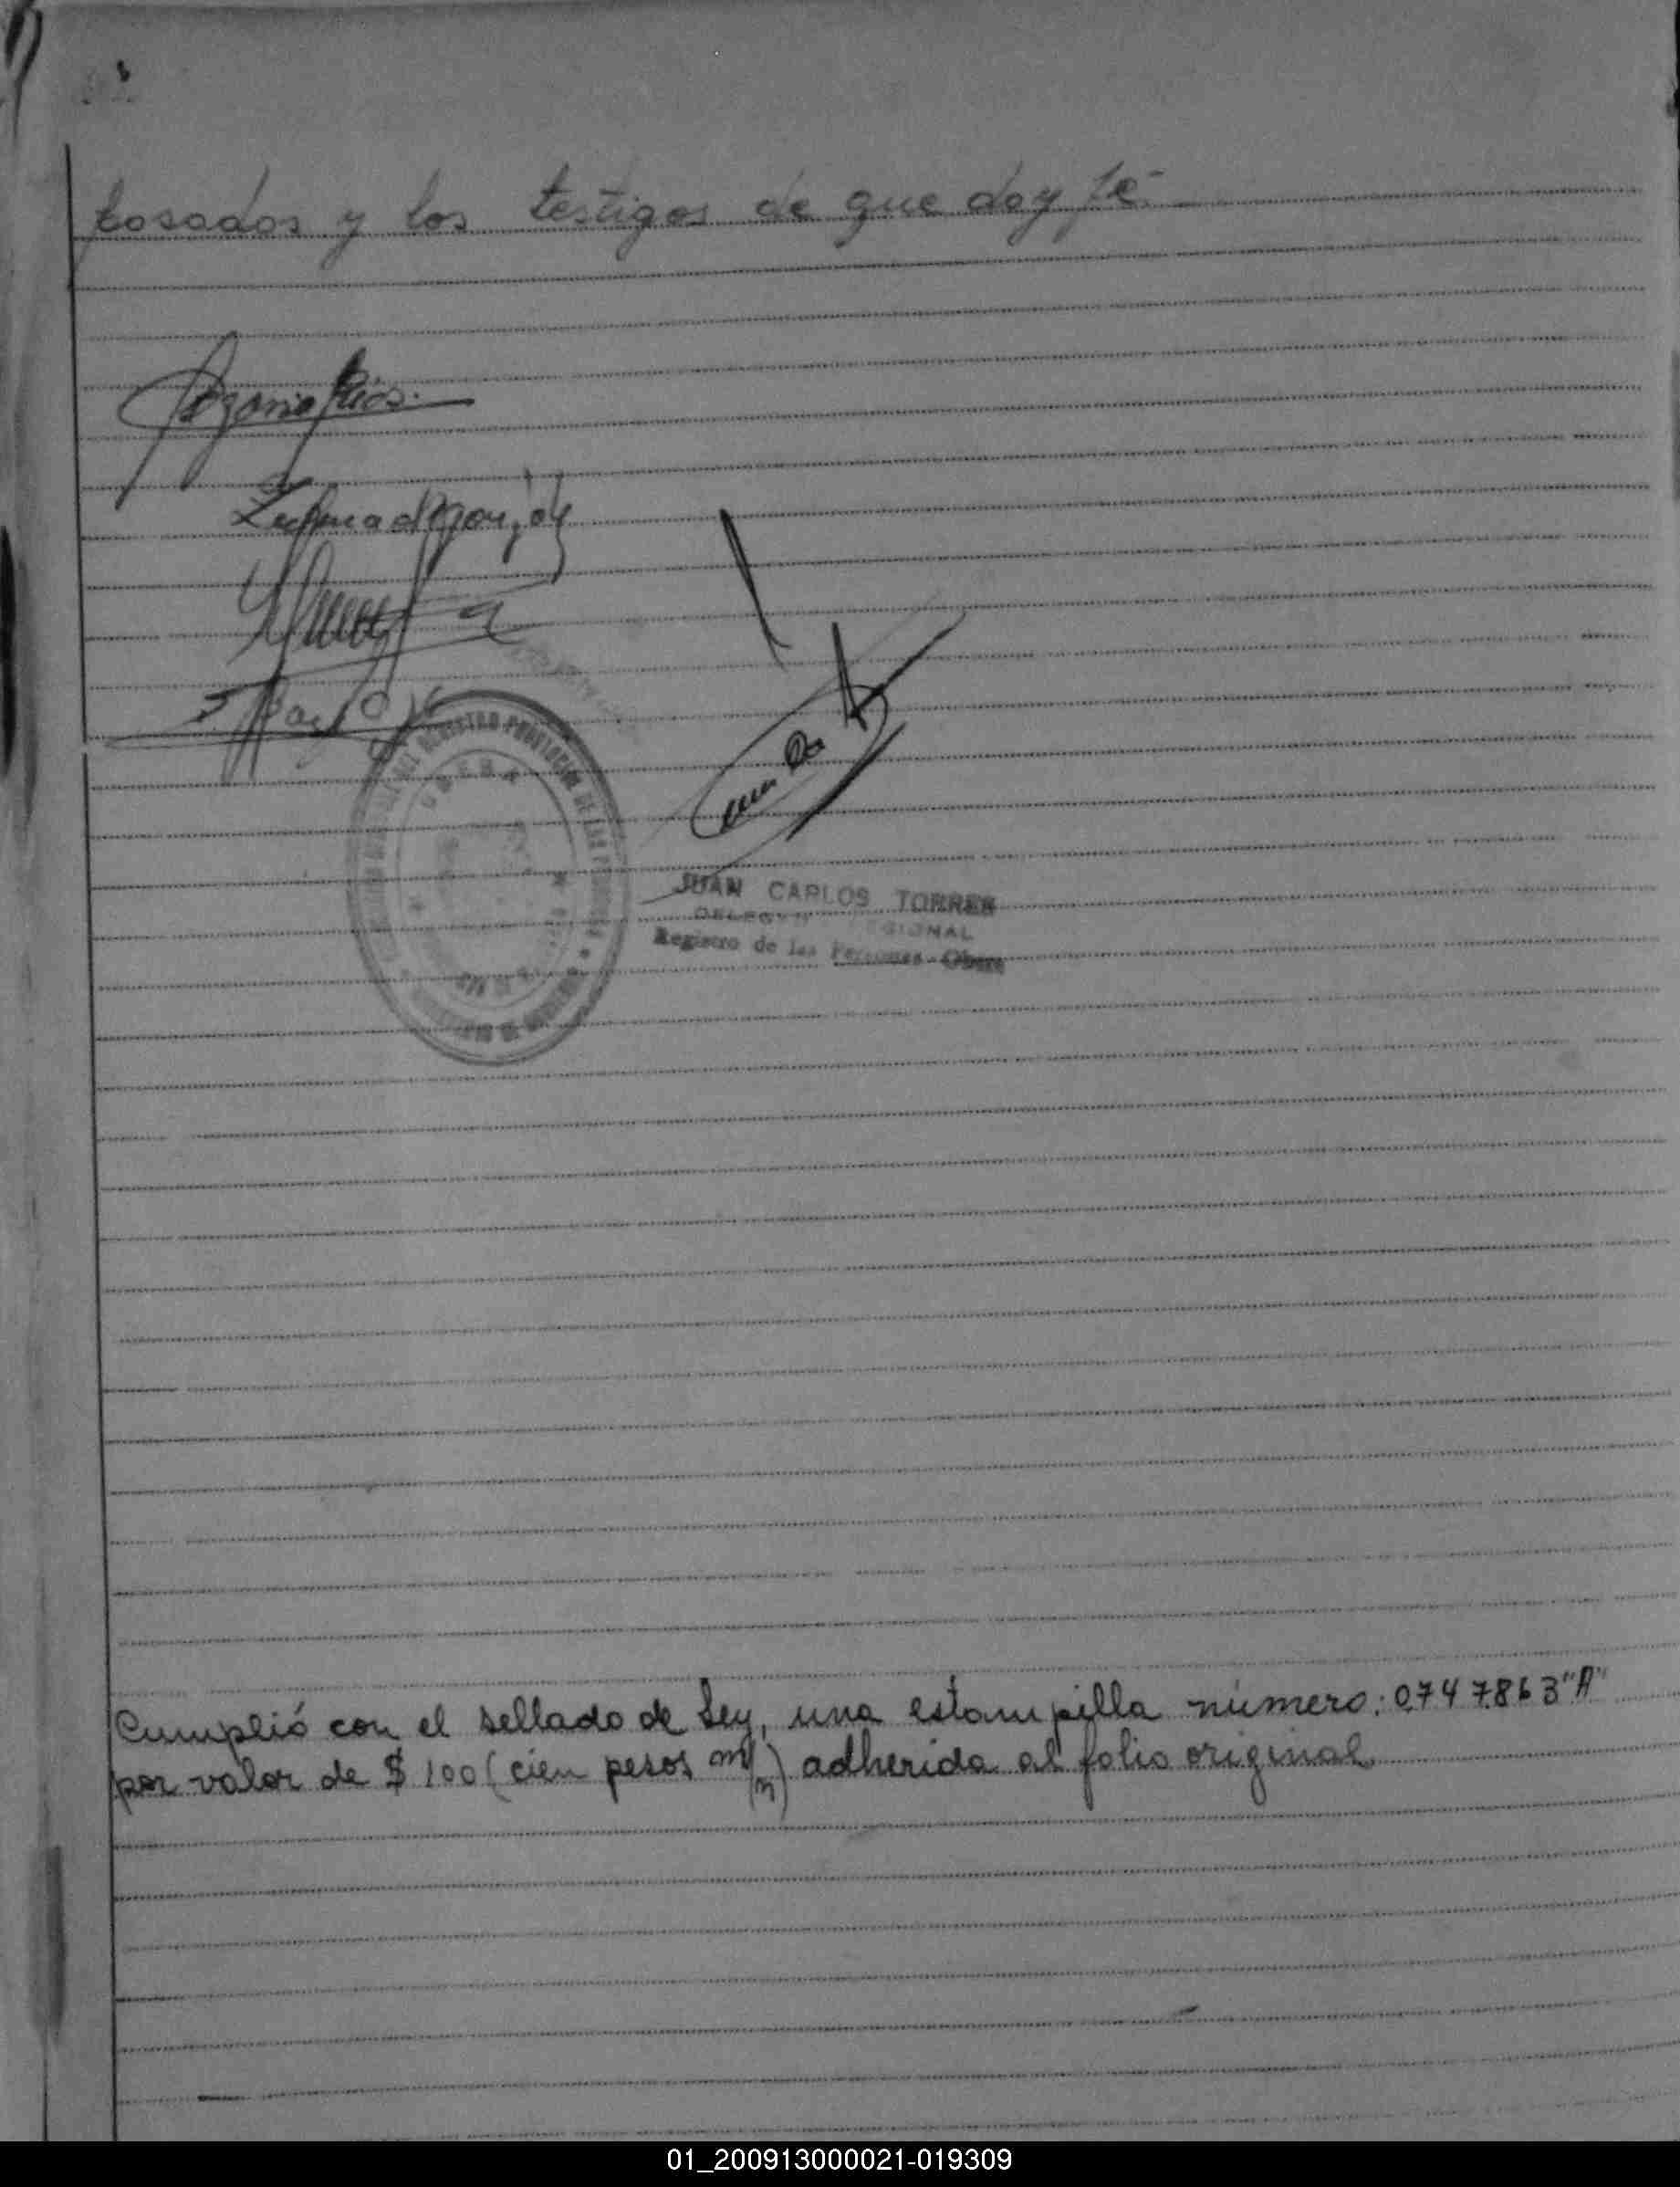 posados y los testigos de que doy fé.
Rios.
REGISTRO PROVINCIAL DE LAS PERSONAS
OBERA
JUAN CARLOS TORRES
REGIONAL
Registro de las Personas - Obera
Cumplió con el sellado de Ley, una estampilla número: 0747863 "A"
por valor de $ 100 (cien pesos m/n) adherida al folio original
01_200913000021-019309